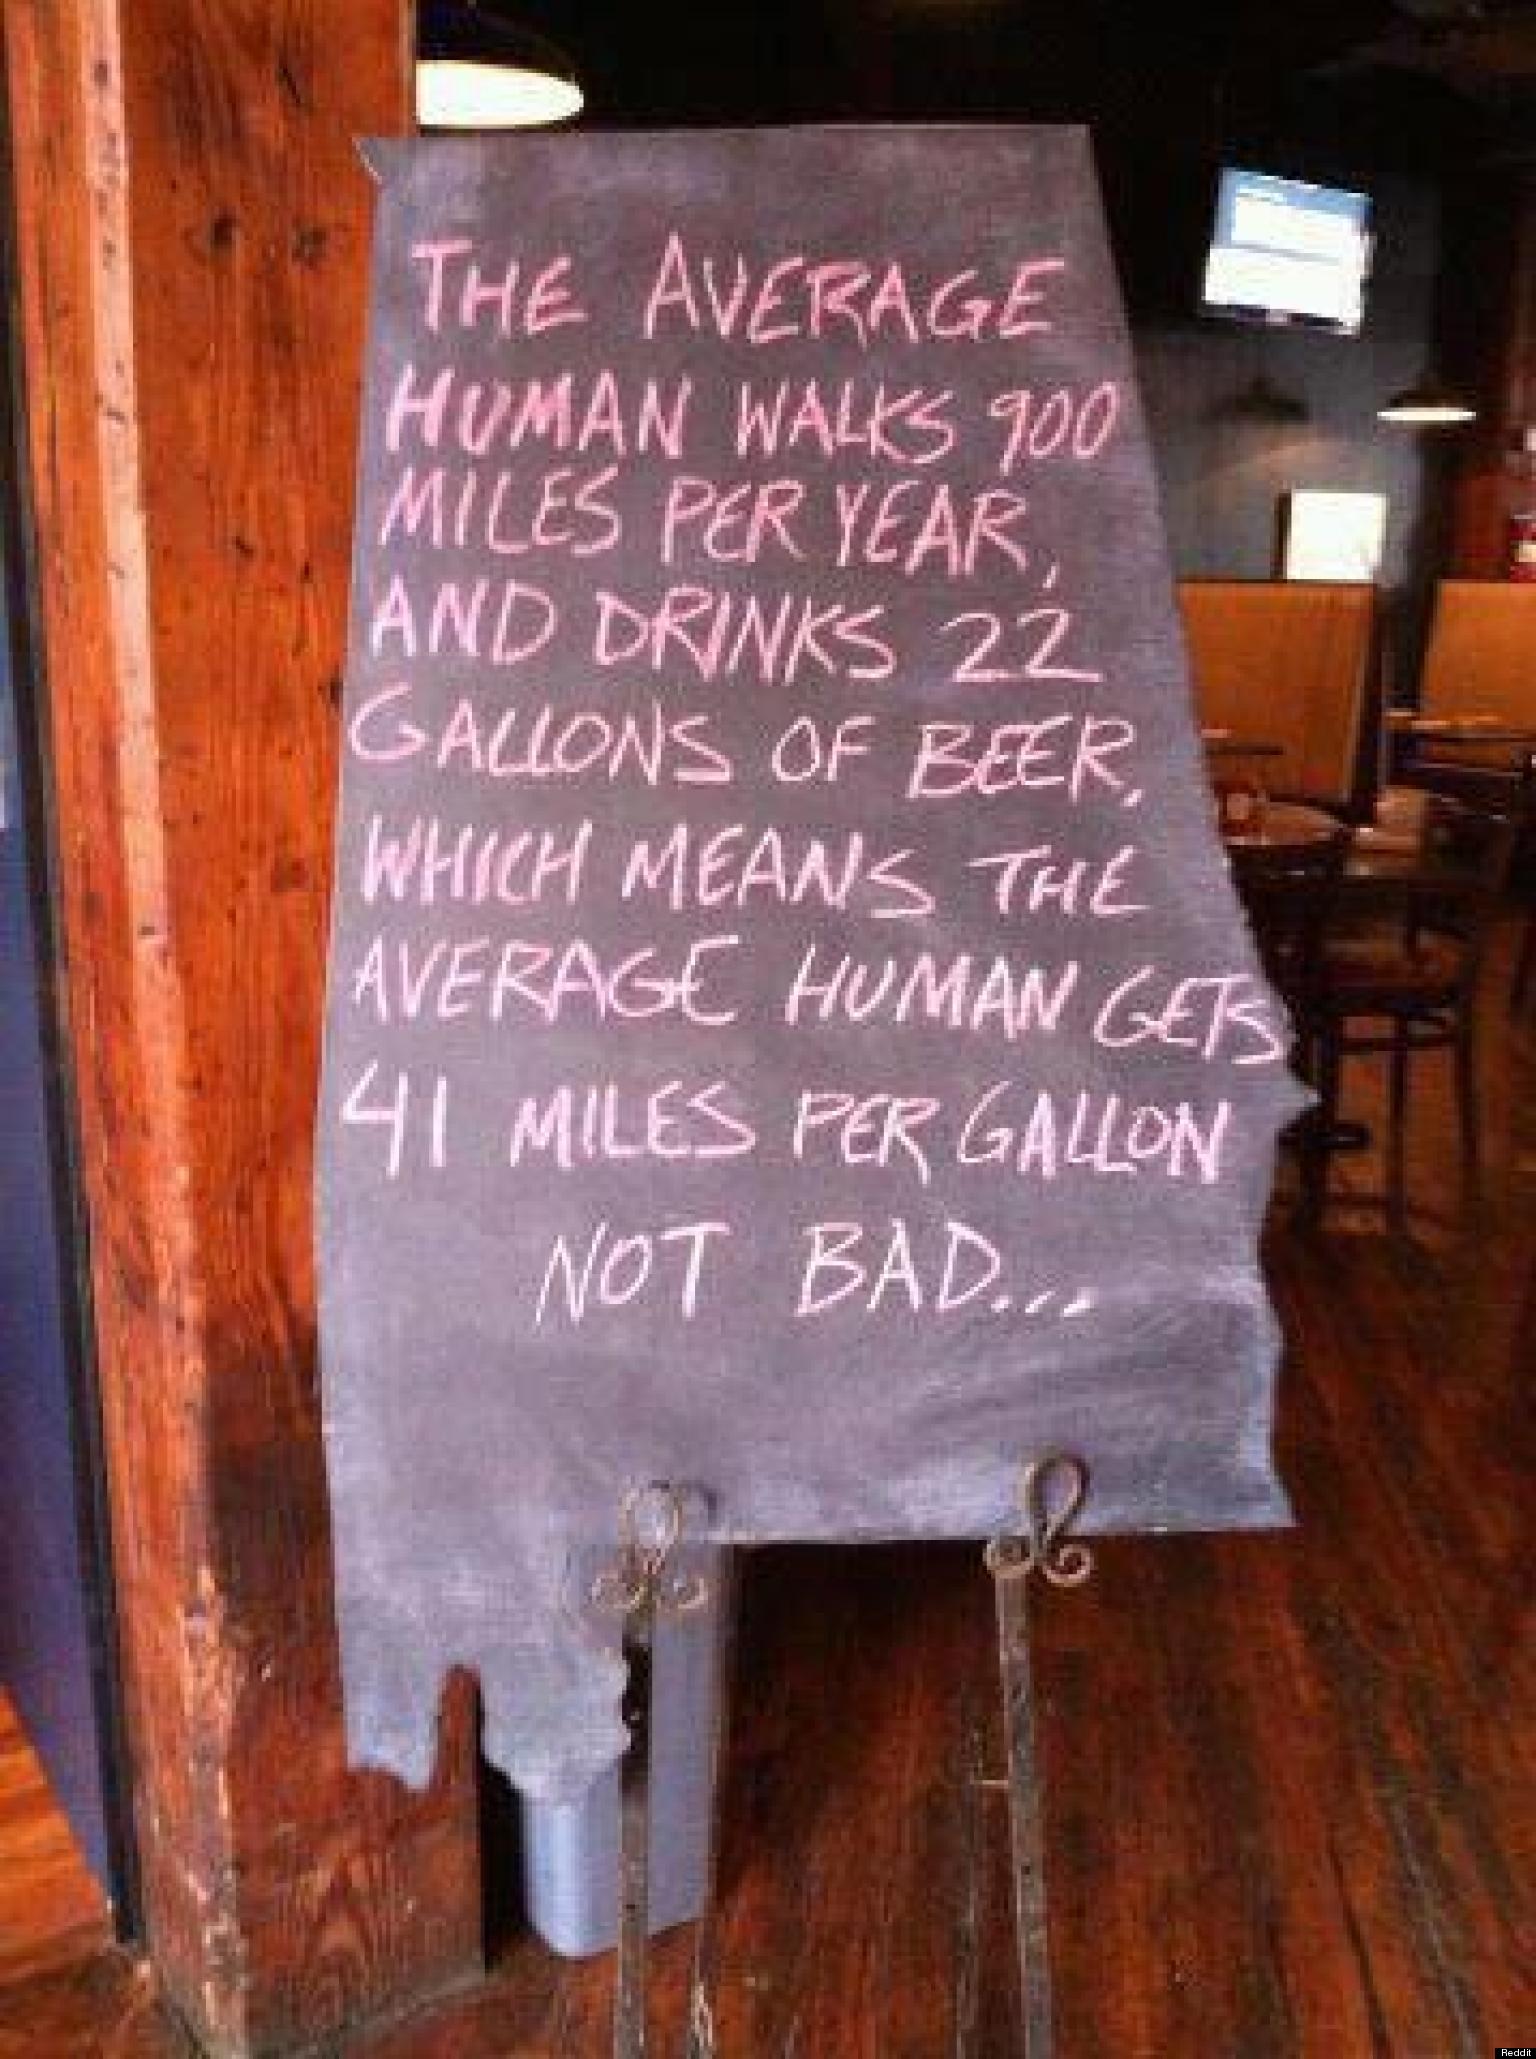 THE AVERAGE
HUMAN WALKS 900
MILES PER YEAR,
AND DRINKS 22
GALLONS OF BEER,
WHICH MEANS THE
AVERAGE HUMAN GETS
41 MILES PER GALLON
NOT BAD...
Reddit